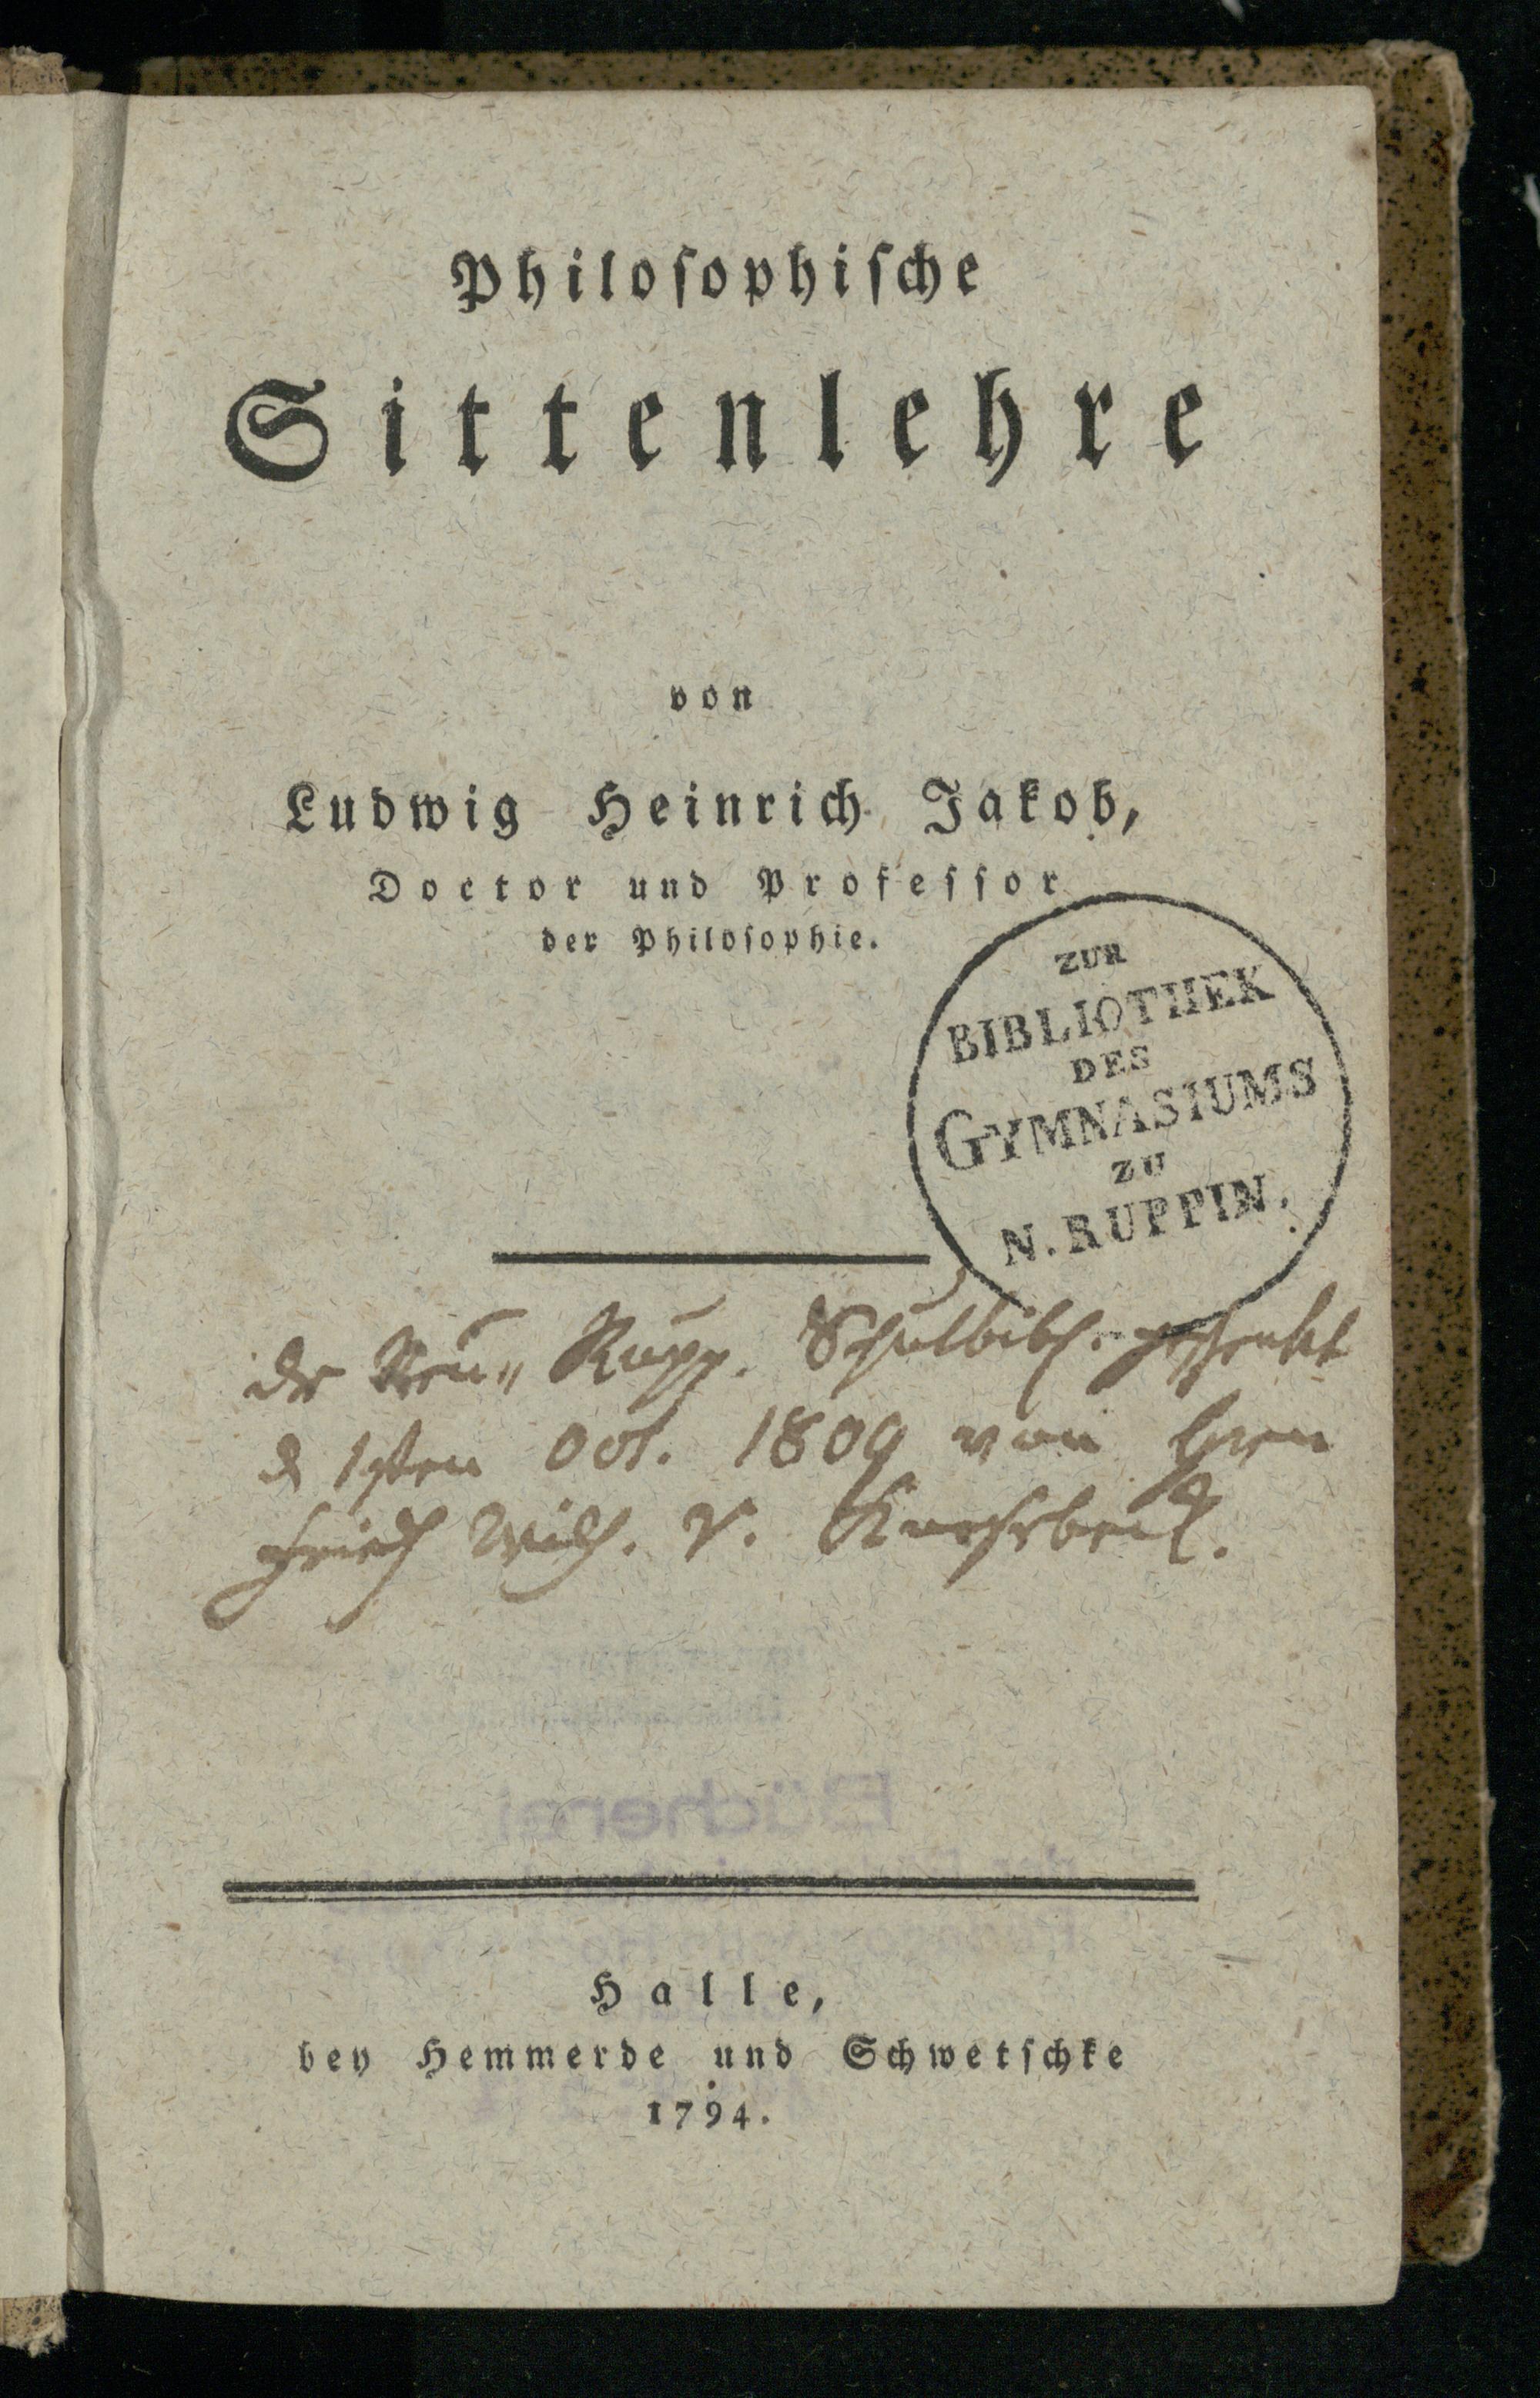 Philosophische
Sittenlehre
von
Ludwig Heinrich Jakob,
Doctor und Professor
der Philosophie.
ZUR
BIBLIOTHEK
DES
GYMNASIUMS
ZU
N. RUPPIN.
der Neu„ Rupp. Schulbibl. geschenkt
d 1sten Oct. 1809 von Hrrn
Friedr Wilh. v.
Bücherei
Halle,
bey Hemmerde und Schwetschke
1794.